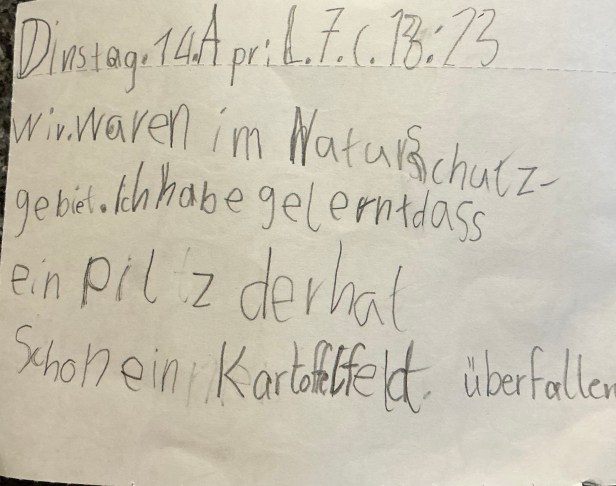 Dinstag.14.April.7.C.13:23
Wir.waren im Naturschutz-
gebiet.Ich habe gelerntdass
ein pilz derhat
Schon ein Kartoffelfeld. überfallen